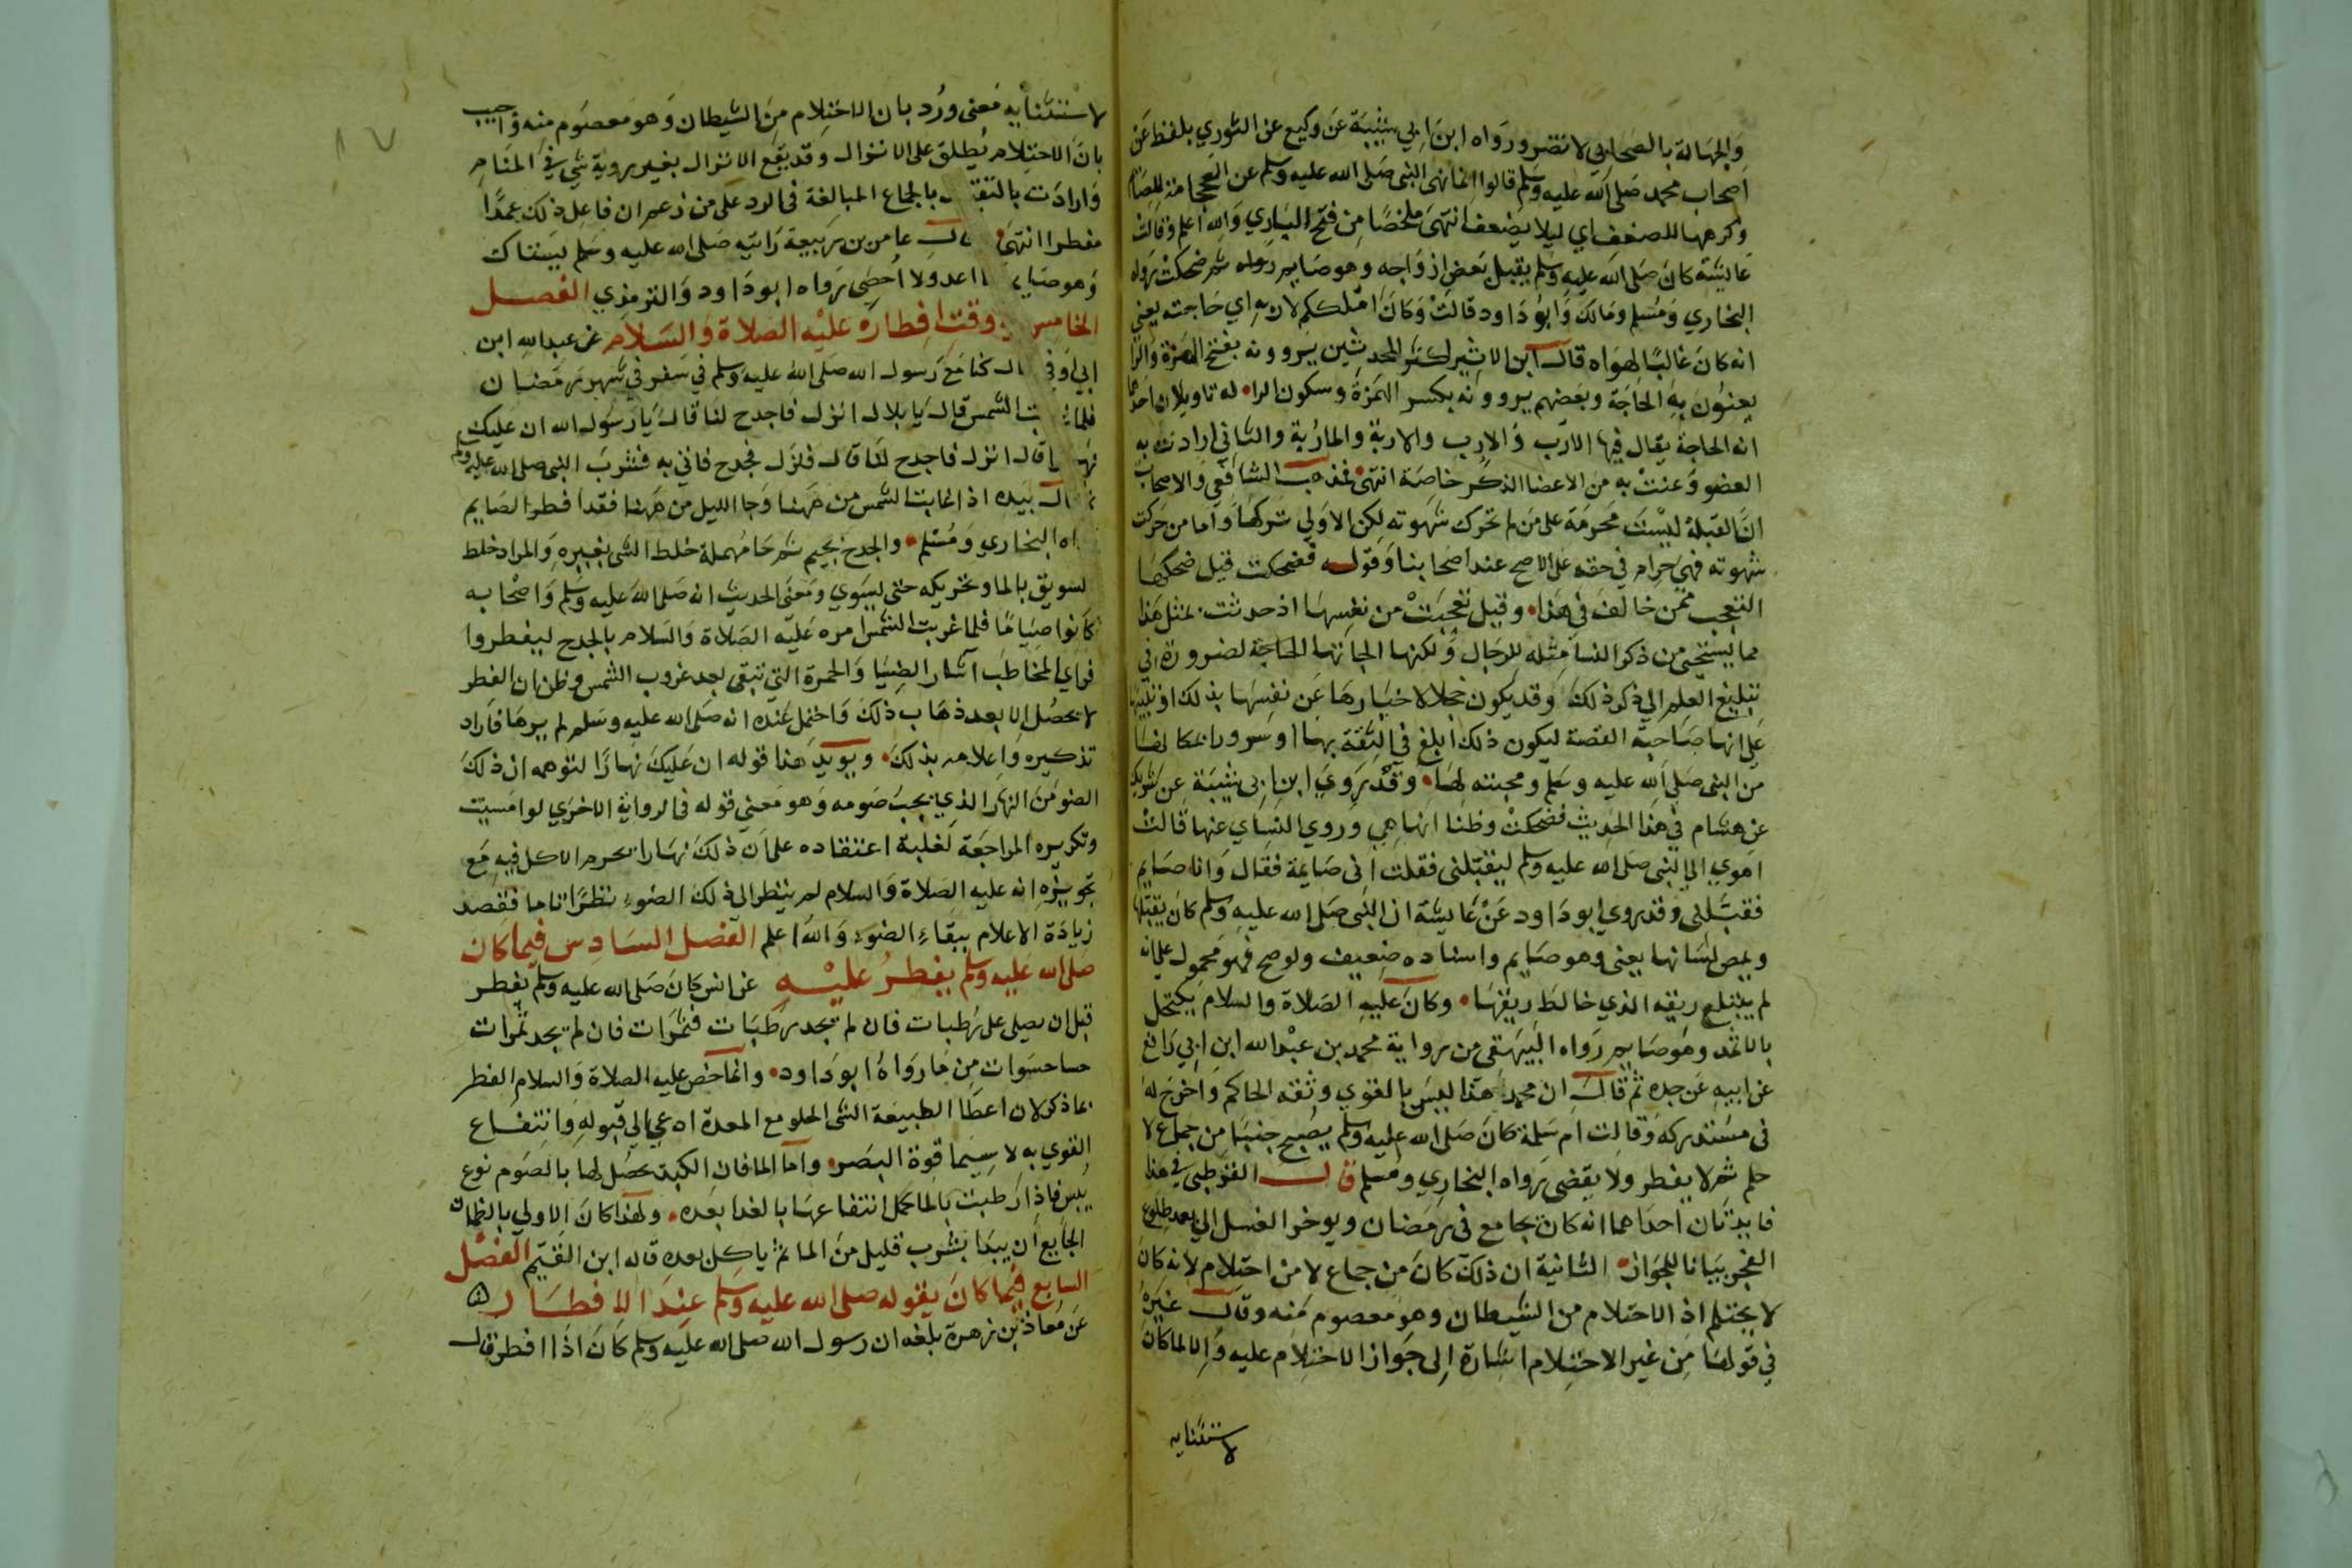 والجهالة بالصحابي لا تضر ورواه ابن ابي شيبة عن وكيع عن الثوري بلفظ عن
اصحاب محمد صلى الله عليه وسلم قالوا انما نهى النبي صلى الله عليه وسلم عن الحجامة للصائم
وكرهها للضعف اي ليلا يضعف انتهى ملخصا من فتح الباري والله اعلم وقالت
عايشة كان صلى الله عليه وسلم يقبل بعض ازواجه وهو صايم ثم ضحكت رواه
البخاري ومسلم ومالك وابو داود قالت وكان املككم لاربه اي حاجته يعني
انه كان غالبا لهواه قال ابن الاثير اكثر المحدثين يروونه بفتح الهمزة والرا
يعنون به الحاجة وبعضهم يروونه بكسر الهمزة وسكون الرا له تاويلان احدهما
انه الحاجة يقال فيها الارب والارب والاربة والماربة والثاني ارادت به
العضو وعنت به من الاعضا الذكر خاصة انتهى فمذهب الشافعي والاصحاب
ان القبلة ليست محرمة على من لم تحرك شهوته لكن الاولى تركها واما من حركت
شهوته فهي حرام في حقه على الاصح عند اصحابنا وقوله فضحكت قيل ضحكها
التعجب ممن خالف في هذا وقيل تعجبت من نفسها اذ حدثت بمثل هذا
مما يستحيى من ذكر النسا مثله للرجال ولكنها الجاتها الحاجة لضرورة في
تبليغ العلم الى ذكر ذلك وقد يكون خجلا لاخبارها عن نفسها بذلك او تنبيها
على انها صاحبة القصة ليكون ذلك ابلغ في الثقة بها او سرورا بمكانها
من النبي صلى الله عليه وسلم ومحبته لها وقد روى ابن ابي شيبة عن شريك
عن هشام في هذا الحديث فضحكت وظننا انها هي وروى النساي عنها قالت
اهوى الي النبي صلى الله عليه وسلم ليقبلني فقلت اني صايمة فقال وانا صايم
فقبلني وقد روى ابو داود عن عايشة ان النبي صلى الله عليه وسلم كان يقبلها
ويمص لسانها يعني وهو صايم واسناده ضعيف ولو صح فهو محمول على انه
لم يبتلع ريقه الذي خالط ريقها وكان عليه الصلاة والسلام يكتحل
بالاثمد وهو صايم رواه البيهقي من رواية محمد بن عبد الله ابن ابي رافع
عن ابيه عن جده ثم قال ان محمدا هذا ليس بالقوي وثقه الحاكم واخرج له
في مستدركه وقالت ام سلمة كان صلى الله عليه وسلم يصبح جنبا من جماع لا
حلم ثم لا يفطر ولا يقضي رواه البخاري ومسلم قال القرطبي في هذا
فايدتان احداهما انه كان يجامع في رمضان ويوخر الغسل الى بعد طلوع
الفجر بيانا للجواز الثانية ان ذلك كان من جماع لا من احتلام لانه كان
لا يحتلم اذ الاحتلام من الشيطان وهو معصوم منه وقال غيره
في قولها من غير الاحتلام اشارة الى جواز الاحتلام عليه والا لما كان
لاستثنايه
لاستثنايه معنى ورد بان الاحتلام من الشيطان وهو معصوم منه واجيب
بان الاحتلام يطلق على الانزال وقد يقع الانزال بغير روية شي في المنام
وارادت بالتقـ ـ بالجماع المبالغة في الرد على من زعم ان فاعل ذلك عمدا
مفطر انتهى ـال عامر بن ربيعة رايته صلى الله عليه وسلم يستاك
وهو صايـ ـا اعد ولا احصى رواه ابو داود والترمذي الفصل
الخامس ـي وقت افطاره عليه الصلاة والسلام عن عبد الله ابن
ابي اوفى ـال كنا مع رسول الله صلى الله عليه وسلم في سفر في شهر رمضان
فلما ـت الشمس قال يا بلال انزل فاجدح لنا قال يا رسول الله ان عليك
نهـ ـا قال انزل فاجدح لنا قال فنزل فجدح فاتي به فشرب النبي صلى الله عليه وسلم
ثـ ـال بيده اذا غابت الشمس من ههنا وجا الليل من ههنا فقد افطر الصايم
ـاه البخاري ومسلم والجدح بجيم ثم حا مهملة خلط الشي بغيره والمراد خلط
لسويق بالما وتحريكه حتى يستوي ومعنى الحديث انه صلى الله عليه وسلم واصحابه
كانوا صياما فلما غربت الشمس امره عليه الصلاة والسلام بالجدح ليفطروا
فراى المخاطب آثار الضيا والحمرة التي تبقى بعد غروب الشمس وظن ان الفطر
لا يحصل الا بعد ذهاب ذلك واحتمل عنده انه صلى الله عليه وسلم لم يرها فاراد
تذكيره واعلامه بذلك ويويد هذا قوله ان عليك نهارا لتوهمه ان ذلك
الضو من النهار الذي يجب صومه وهو معنى قوله في الرواية الاخرى لو امسيت
وتكريره المراجعة لغلبة اعتقاده على ان ذلك نهارا يحرم الاكل فيه مع
تجويزه انه عليه الصلاة والسلام لم ينظر الى ذلك الضوء نظرا تاما فقصد
زيادة الاعلام ببقاء الضوء والله اعلم الفصل السادس فيما كان
صلى الله عليه وسلم يفطر عليه عن انس كان صلى الله عليه وسلم يفطر
قبل ان يصلي على رطبات فان لم يجد رطبات فتمرات فان لم يجد تمرات
حسا حسوات من ما رواه ابو داود وانما خص عليه الصلاة والسلام الفطر
بما ذكر لان اعطا الطبيعة الشي الحلو مع المعدة ادعى الى قبوله وانتفاع
القوى به لا سيما قوة البصر واما الما فان الكبد يحصل لها بالصوم نوع
يبس فاذا رطبت بالما كمل انتفاعها بالغدا بعده ولهذا كان الاولى بالظمان
الجايع ان يبدا بشرب قليل من الما ثم ياكل بعده قاله ابن القيم الفصل
السابع فيما كان يقوله صلى الله عليه وسلم عند الافطار
عن معاذ بن زهرة بلغه ان رسول الله صلى الله عليه وسلم كان اذا افطر قال